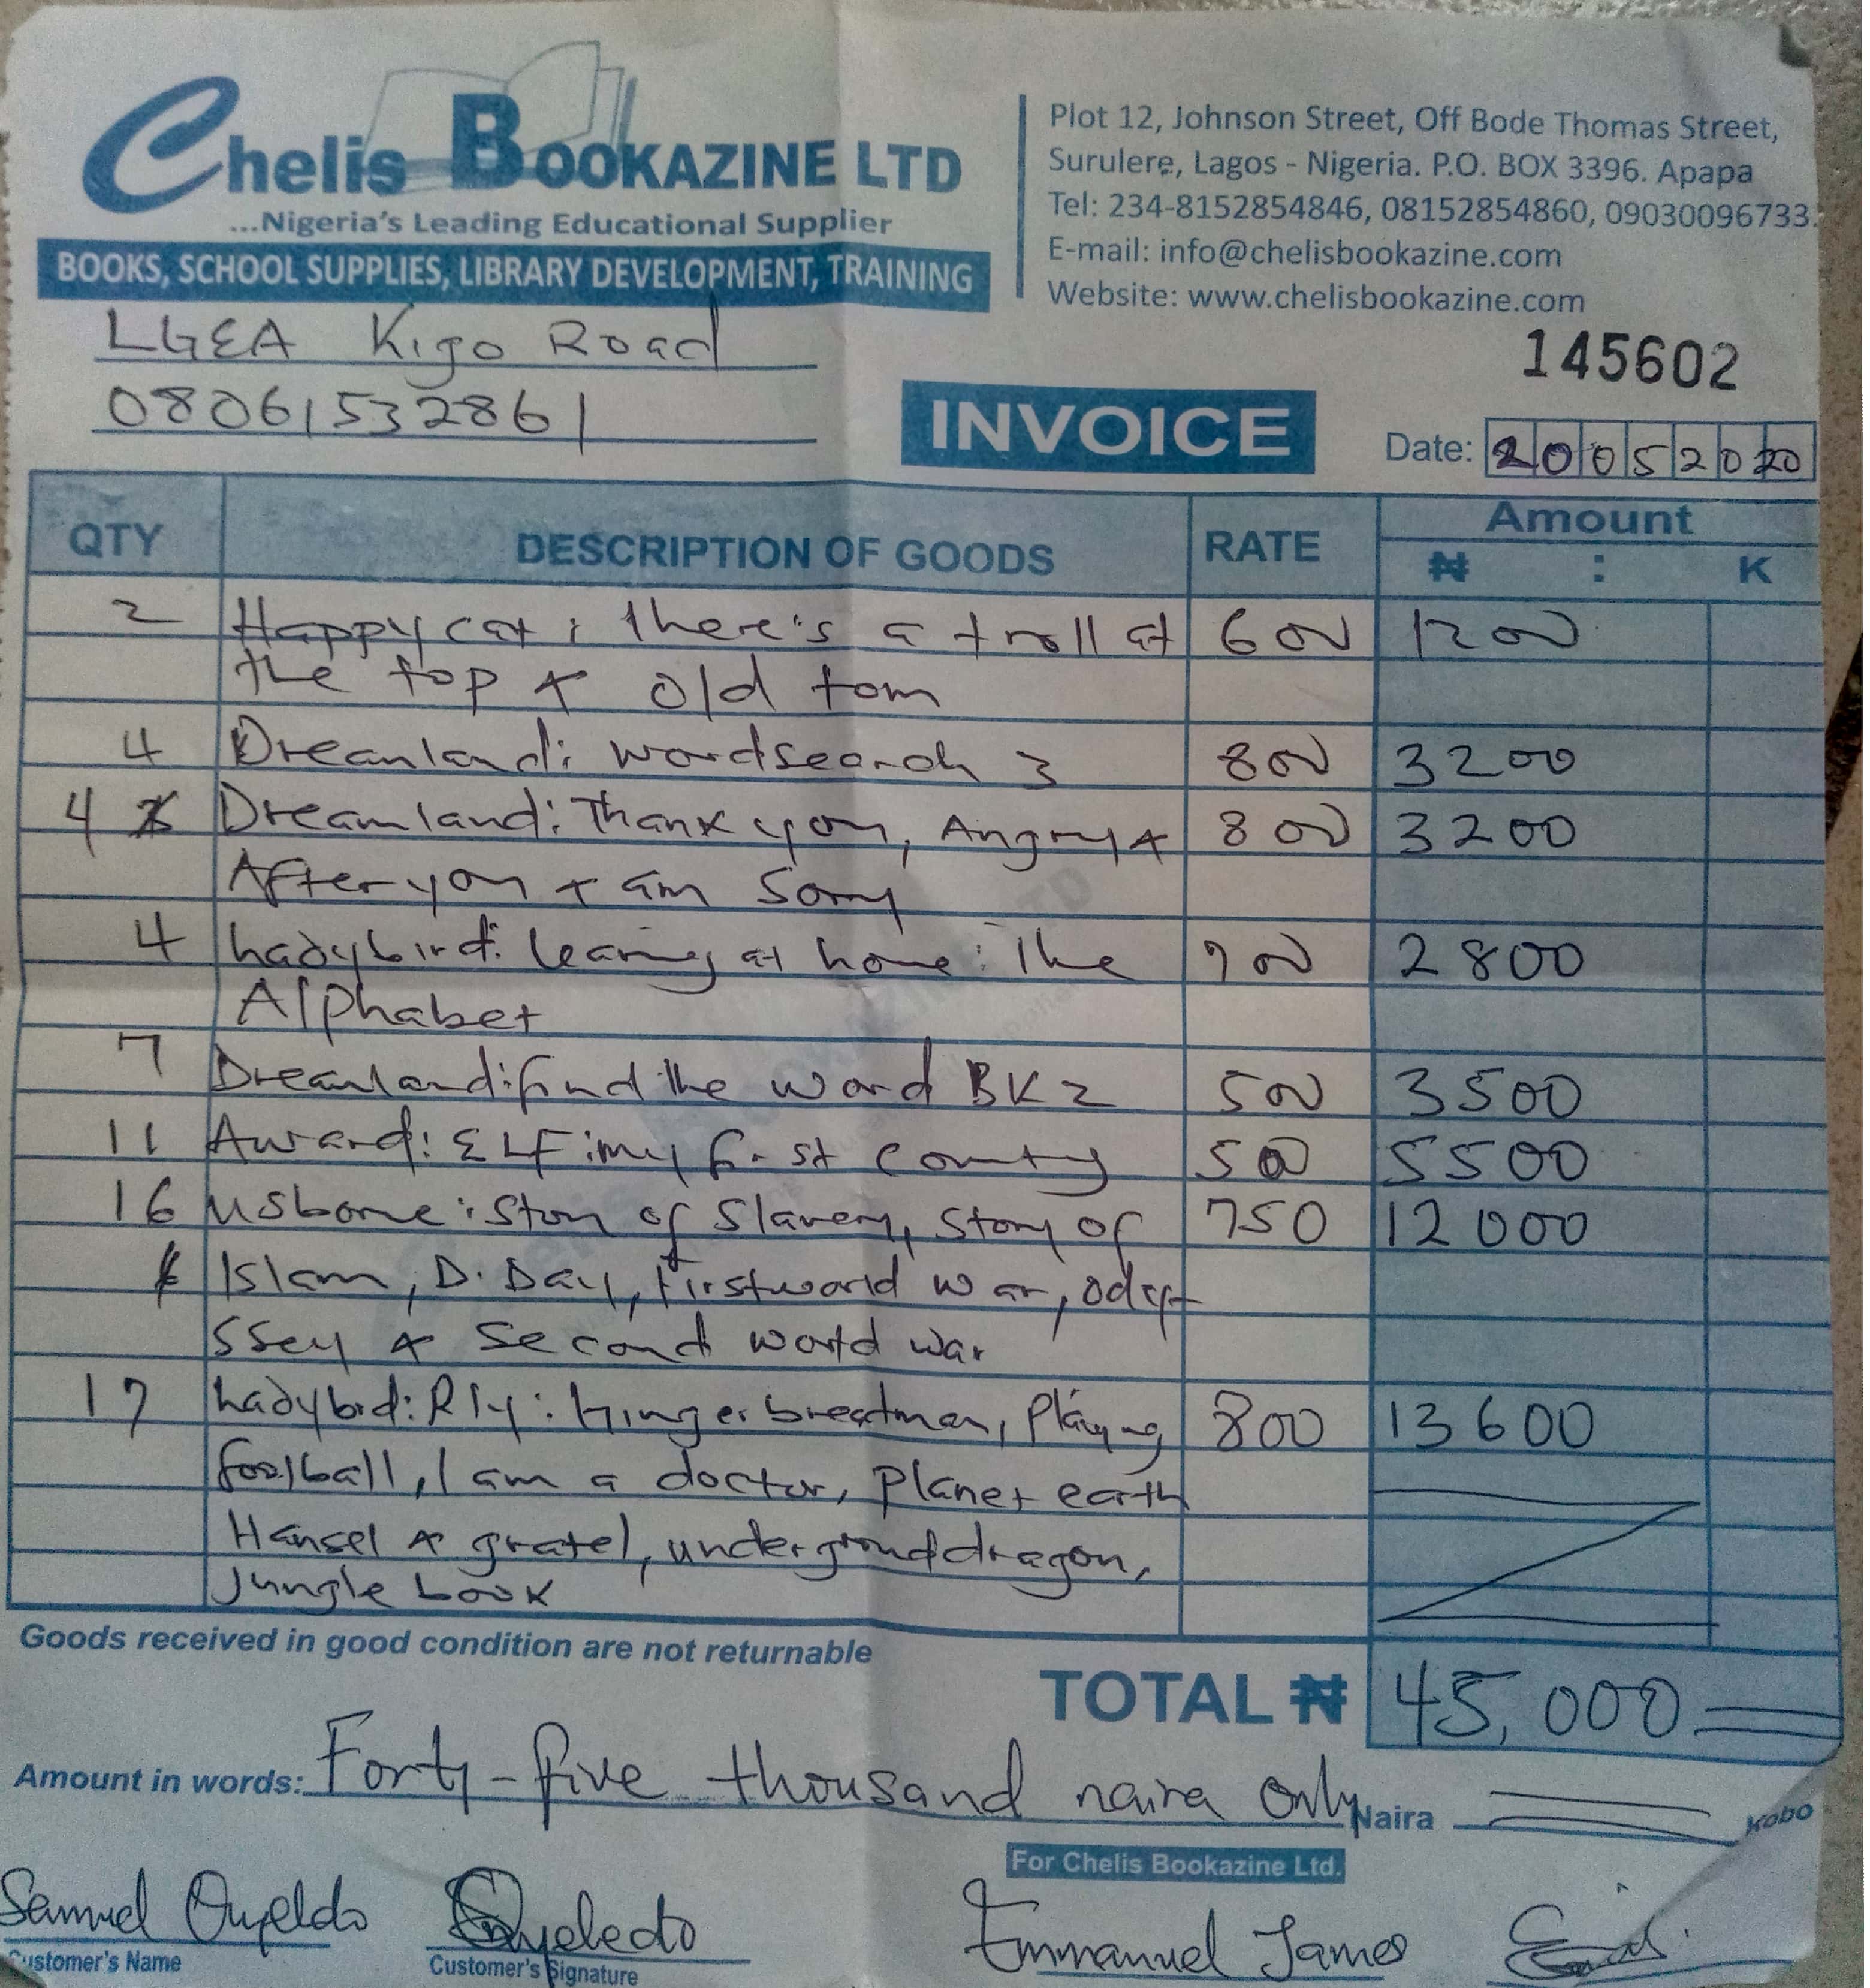 Chelis BOOKAZINE LTD
...Nigeria's Leading Educational Supplier
BOOKS, SCHOOL SUPPLIES, LIBRARY DEVELOPMENT, TRAINING
Plot 12, Johnson Street, Off Bode Thomas Street,
Surulere, Lagos - Nigeria. P.O. BOX 3396. Apapa
Tel: 234-8152854846, 08152854860, 09030096733.
E-mail: info@chelisbookazine.com
Website: www.chelisbookazine.com
LGEA Kigo Road
08061532861
145602
INVOICE
Date: 20052020
QTY DESCRIPTION OF GOODS RATE Amount
₦ : K
2 Happy cat: there's a troll at 600 1200
the top & old tom
4 Dreamland: wordsearch 3 800 3200
4 Dreamland: Thank you, Angry & 800 3200
After you & am sorry
4 Ladybird: learning at home: The 700 2800
Alphabet
7 Dreamland: find the word BK 2 500 3500
11 Award: ELF: my first 500 5500
16 Usborne: Story of Slavery, Story of 750 12000
Islam, D. Day, First world war, ody-
ssey & Second world war
17 Ladybird: Rly: Gingerbreadman, Playing 800 13600
football, I am a doctor, Planet earth
Hansel & gratel, underground dragon,
Jungle book
Goods received in good condition are not returnable
TOTAL ₦ 45,000
Amount in words: Forty-five thousand naira only Naira Kobo
For Chelis Bookazine Ltd.
Samuel Emmanuel James
Customer's Name Customer's Signature